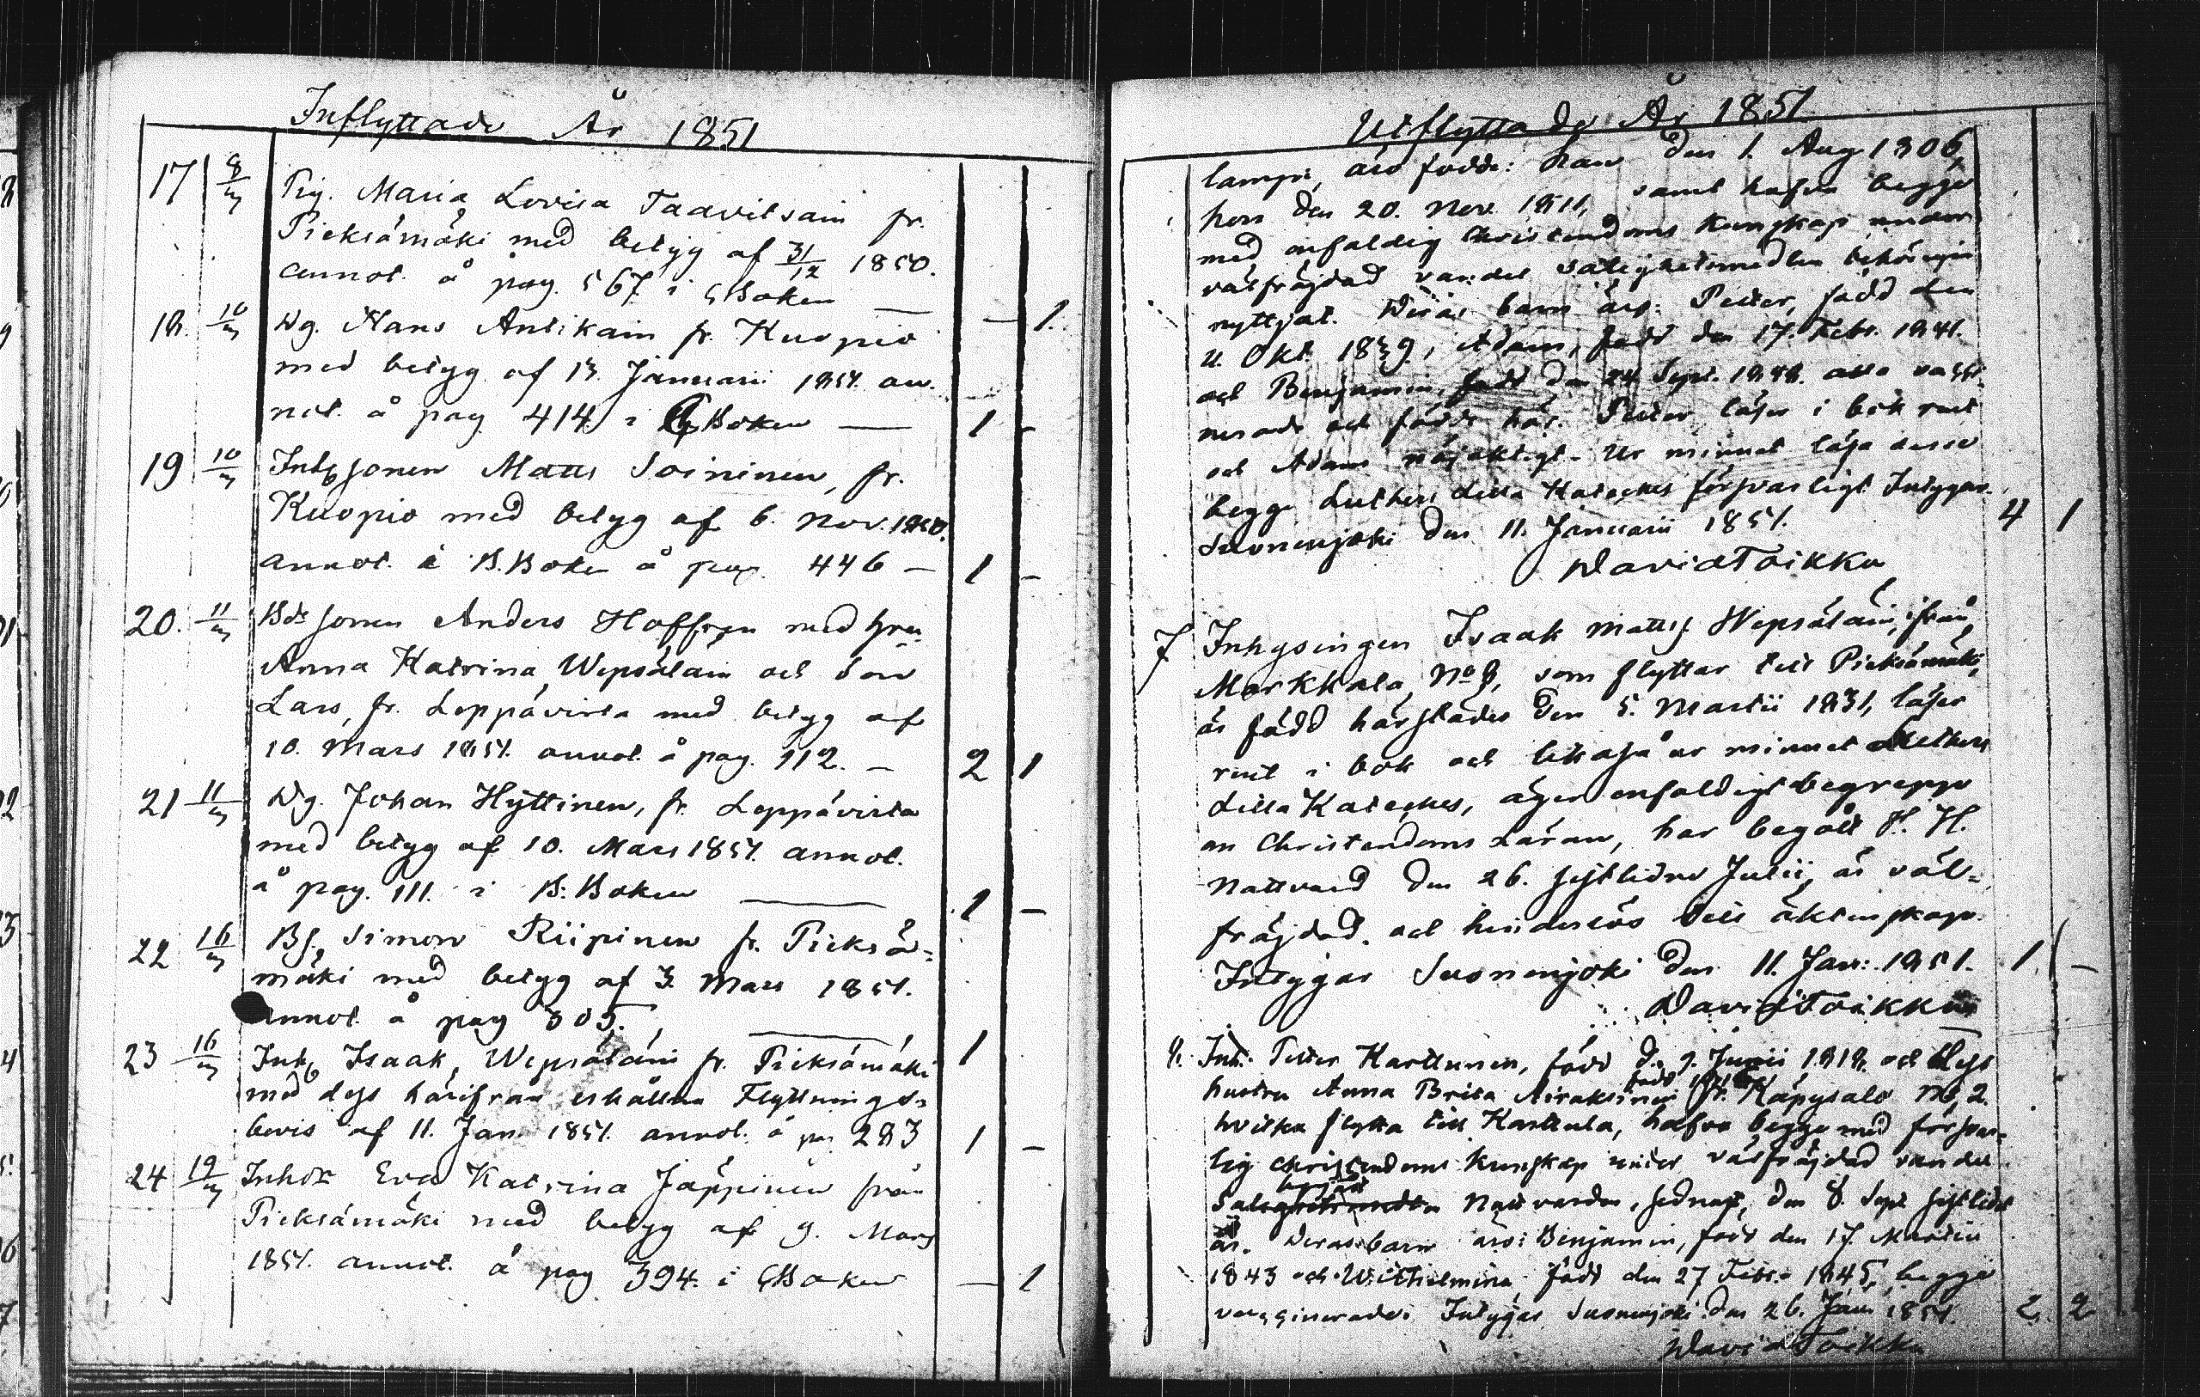 Inflyttade År 1851
17 8/3 Pig. Maria Lovisa Taavitsain fr.
Pieksämäki med betyg af 31/12 1850.
annot. å pag. 567. i G Boken — — 1.
18. 10/3 Dg. Hans Antikain fr. Kuopio
med betyg af 13. Januarii 1851. an-
not. å pag 414. i G Boken — 1 -
19 10/3 Inh. sonen Matts Soininen, fr.
Kuopio med betyg af 6. Nov. 1850.
annot. i B. Boken å pag. 446 — 1 -
20. 11/3 Bde sonen Anders Hoffren med hru
Anna Katrina Wepsäläin och son
Lars, fr. Leppävirta med betyg af
10. Mars 1851. annot. å pag. 112. — 2 1
21 11/3 Dg. Johan Hyttinen, fr. Leppävirta
med betyg af 10. Mars 1851. annot.
å pag. 111. i B. Boken — 1 -
22 16/3 Bs. Simon Riipinen fr. Pieksä-
mäki med betyg af 3. Mars 1851.
annot. å pag 305. — 1
23 16/3 Inh. Isaak Wepsäläin fr. Pieksämäki
med dess härifrån erhållna Flyttnings-
bevis af 11. Jan. 1851. annot. å pag 283 1 -
24 19/3 Inh. Eva Katrina Jäppinen från
Pieksämäki med betyg af 9. Mars
1851. annot. å pag 394. i G Boken — 1
Utflyttade År 1851.
lampi, äro födde: han den 1. Aug 1806,
hon den 20. Nov. 1811, samt hafva begge
med enfaldig Christendoms kunskap under
välfräjdad vandel salighetsmedlen behörigen
nyttjat. Deras barn äro: Petter, född den
11. Okt. 1839, Adam, född den 17. Febr. 1841.
och Benjamin, född den 24 Sept. 1848. alla vacci-
nerade och födde här. Petter läser i bok rent
och Adam nöjaktigt. Ur minnet läsa desse
begge Lutheri Lilla Kateches försvarligt Intygar.
Suonenjoki den 11. Januarii 1851. 4 1
David Toikka
7 Inhysingen Isaak Mattss. Wepsäläin, ifrån
Markkala No 9, som flyttar till Pieksämäki,
är född härstädes den 5. Martii 1831, läser
rent i bok och likaså ur minnet Lutheri
Lilla Kateches, äger enfaldigt begrepp
om Christendoms Läran, har begått H. H.
Nattvard den 26. sistlidne Julii, är väl-
fräjdad och hinderlös till äktenskap.
Intygar Suonenjoki den 11. Jan: 1851. 1. -
David Toikka
8. Inh. Petter Karttunen, född d. 9. Junii 1818. och dess
hustru Anna Brita Airaksinen fr. Käpysalo No 2.
hvilka flytta till Karttula, hafva begge med försvar-
lig Christendoms kunskap under välfräjdad vandel
begått
Nattvarden, sednast, den 8. Sept sistlidet
år. Deras barn äro: Benjamin, född den 17. Martii
1843 och Wilhelmina, född den 27 Febr. 1845, begge
vaccinerade. Intygar Suonenjoki den 26. Jan: 1851. 2. 2
David Toikka